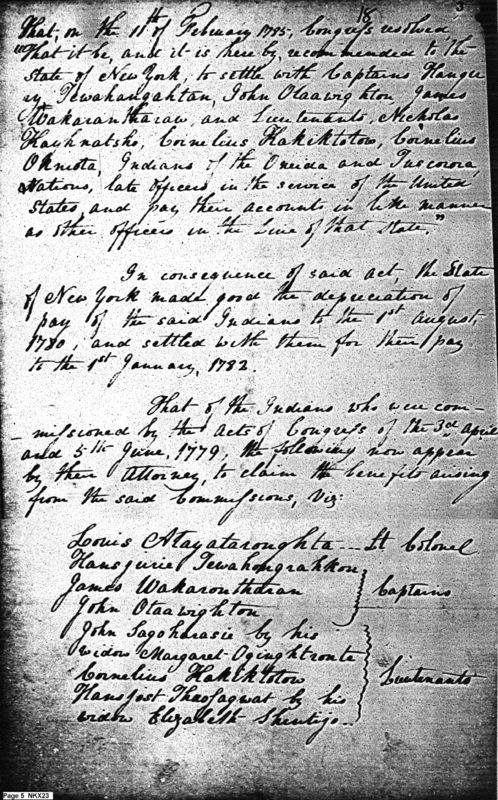 18
3
That, on the 11th of February 1785, Congress resolved
"That it be, and it is hereby, recommended to the
state of New York, to settle with Captains Hanyer
ry Tewahangahtan, John Otaawighton James
Wakarantharaw, and Lieutenants, Nicholas
Kayhnatsho, Cornelius Kakiktotow, Cornelius
Okniota, Indians of the Oneida and Tuscorora,
Nations, late officers, in the service of the United
States, and pay their accounts in like manner
as other officers in the Line of that State."
In consequence of said act, the State
of New York made good the depreciation of
pay of the said Indians to the 1st august,
1780, and settled with them for their pay
to the 1st January, 1782.
That of the Indians who were com-
-missioned by the acts of Congress of the 3rd april
and 5th June, 1779, the following now appear
by their Attorney, to claim the benefits arising
from the said Commissions, Viz:
Louis Atayataroughta -- Lt Colonel
Hansjurie Tewahongrahkon
James Wakarontharan
John Otaawighton
Captains
John Sagoharasie by his
widow Margaret Oginghtronte
Cornelius Kakiktotow
Hansjost Thaosagwat by his
widow Elizabeth Shentijo --
Lieutenants
Page 5 NKX23